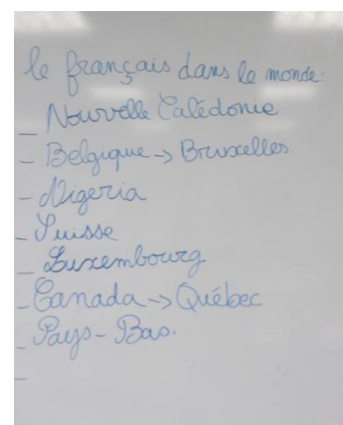 le français dans le monde:
_ Nouvelle Calédonie
- Belgique -> Bruxelles.
- Nigeria
- Suisse
- Luxembourg
- Canada -> Québec
- Pays-Bas.
-